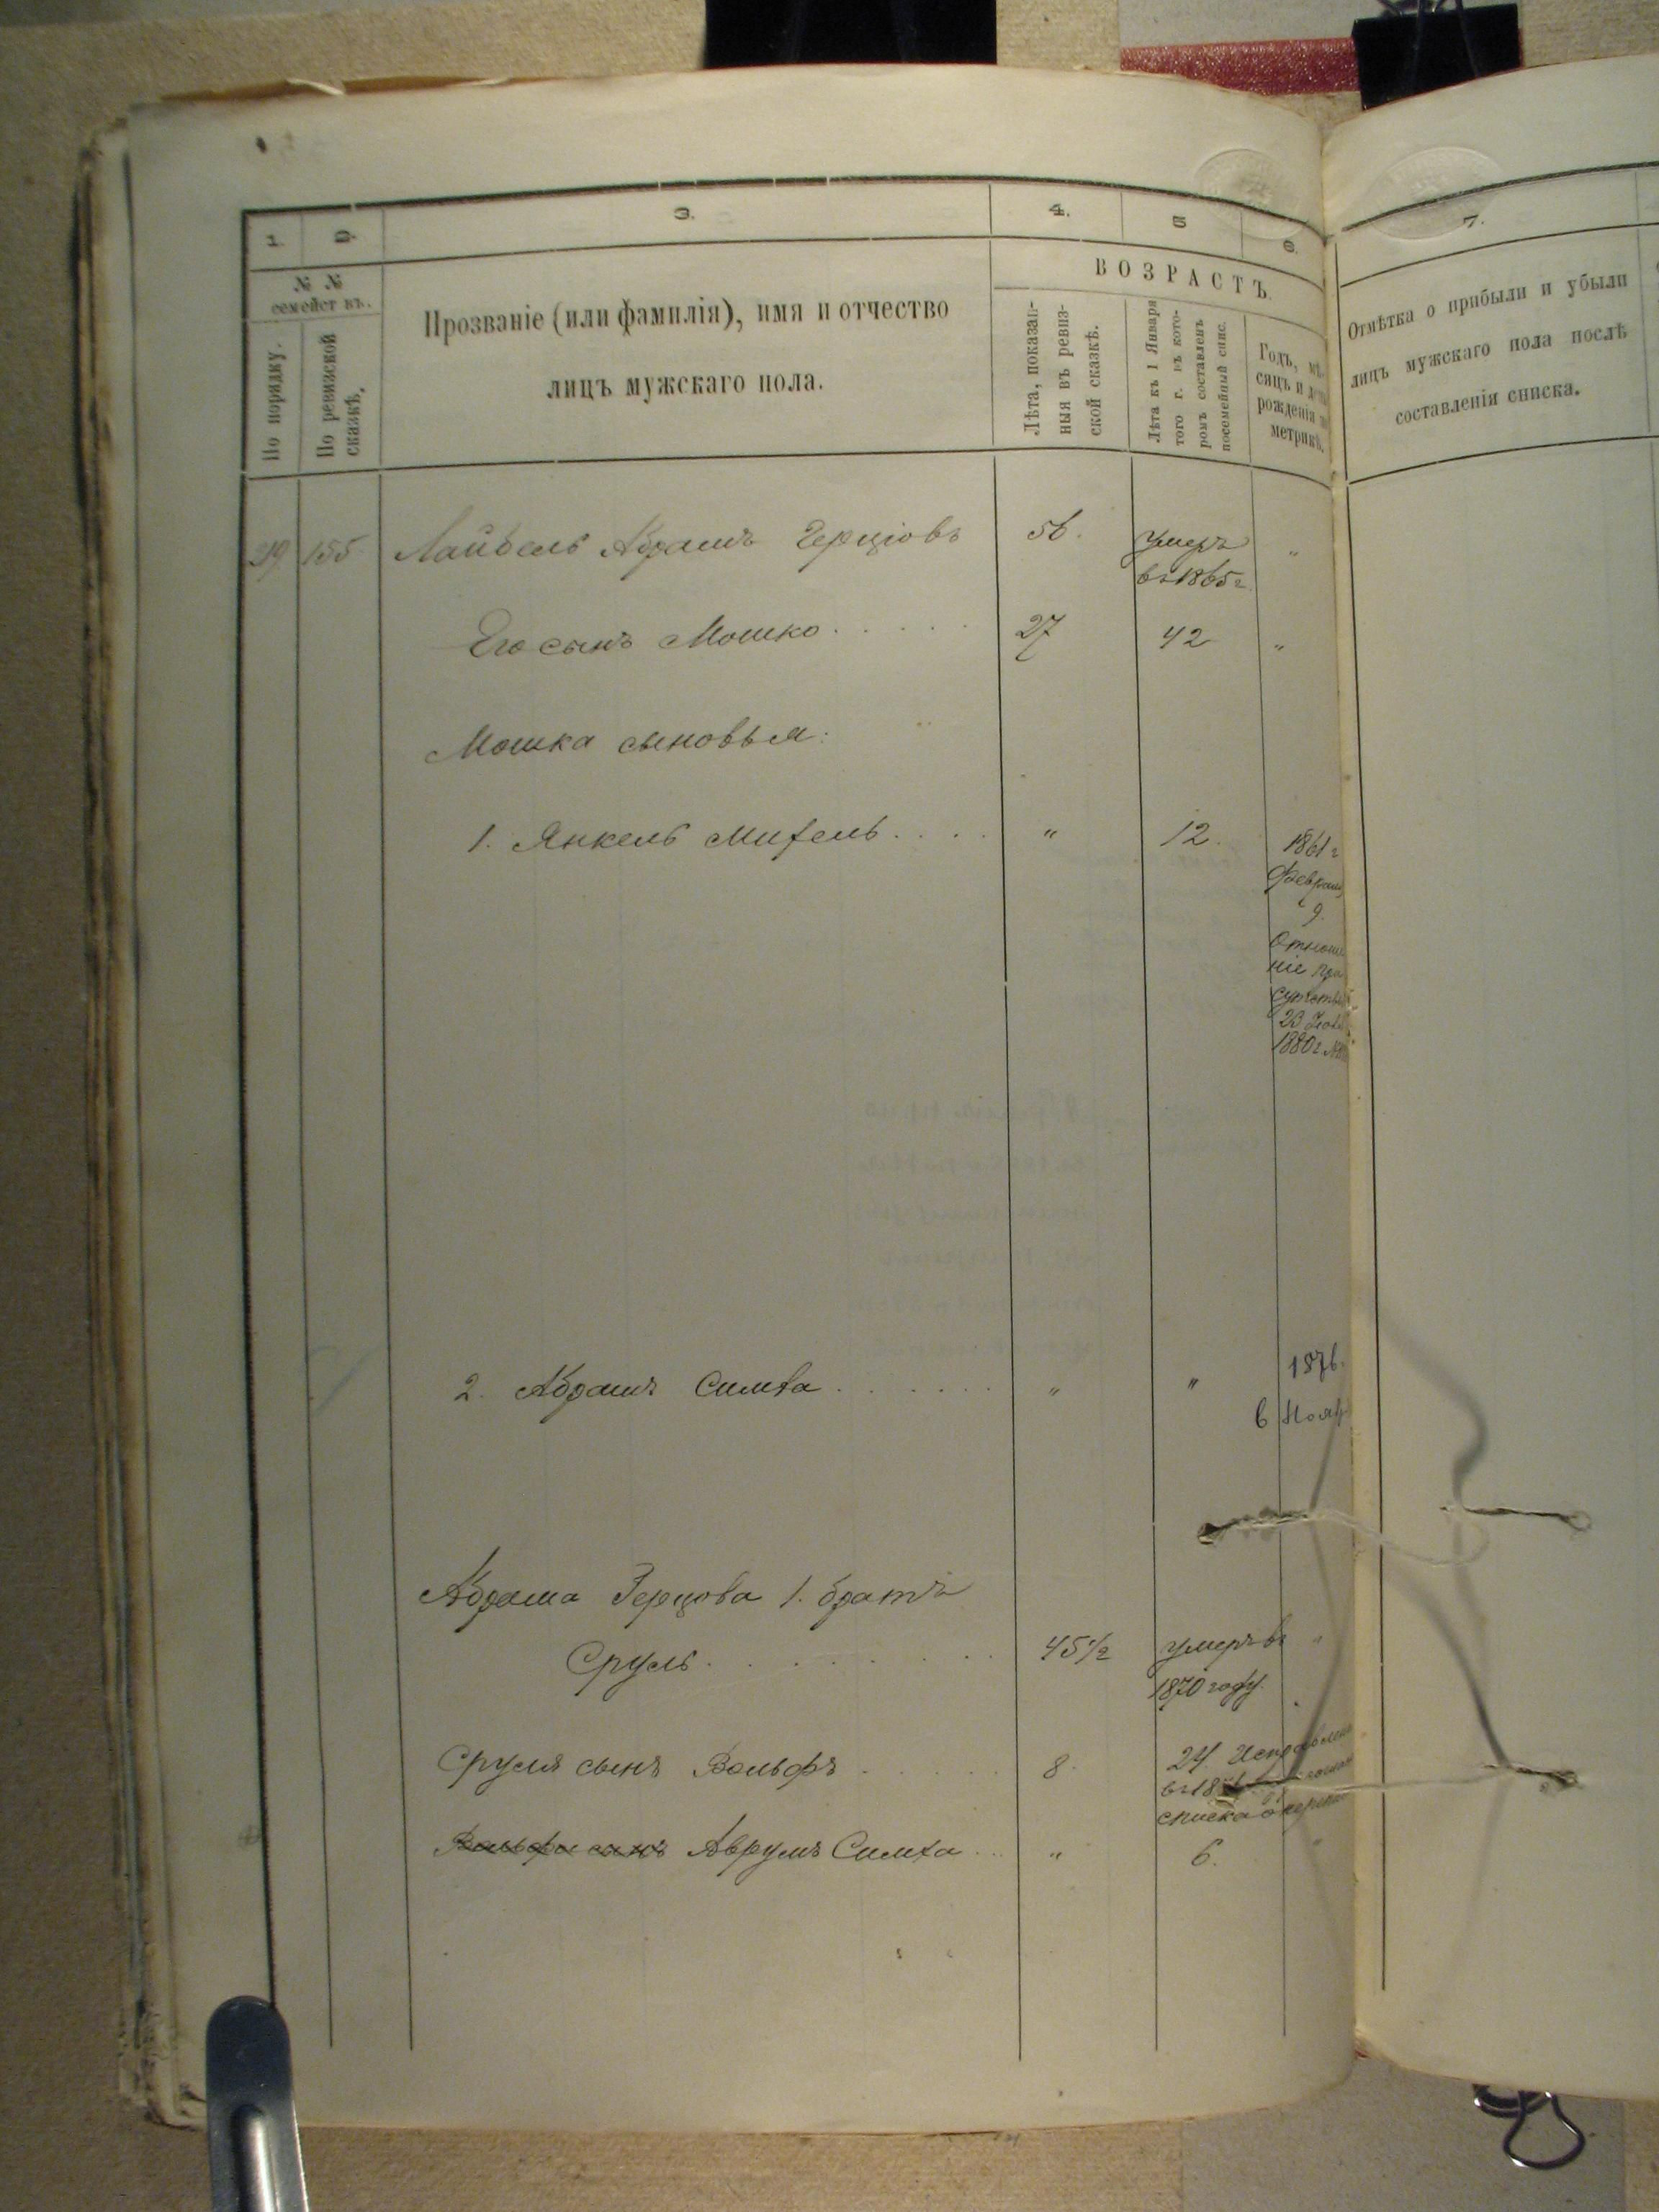 1.
2.
3.
4.
5
6.
7.
№ №
семействъ.
По порядку.
По ревизской
сказкѣ.
Прозваніе (или фамилія), имя и отчество
лицъ мужскаго пола.
ВОЗРАСТЪ.
Лѣта, показан-
ныя въ ревиз-
ской сказкѣ.
Лѣта къ 1 Января
того г. въ кото-
ромъ составленъ
посемейный спис.
Годъ, мѣ-
сяцъ и день
рожденія по
метрикѣ.
Отмѣтка о прибыли и убыли
лицъ мужскаго пола послѣ
составленіи списка.
155 Абрамъ Герцовъ 56. Умеръ „
въ 1865 г.
Его сынъ Мошко 27 42 „
Мошка сыновья:
1. Янкель Михель „ 12. 1861 г
Феврал
9.
Отноше
ніе при
сутств
23
1880 г. №
2. Абрамъ Симха „ „ 1876.
6 Нояб
Абрама Герцова 1. братъ
Сруль 45 1/2 умеръ въ „
1870 году.
Сруля сынъ Вольфъ 8. 24.
въ 18
списка
Вольфа сынъ Аврумъ Симха „ 6. „